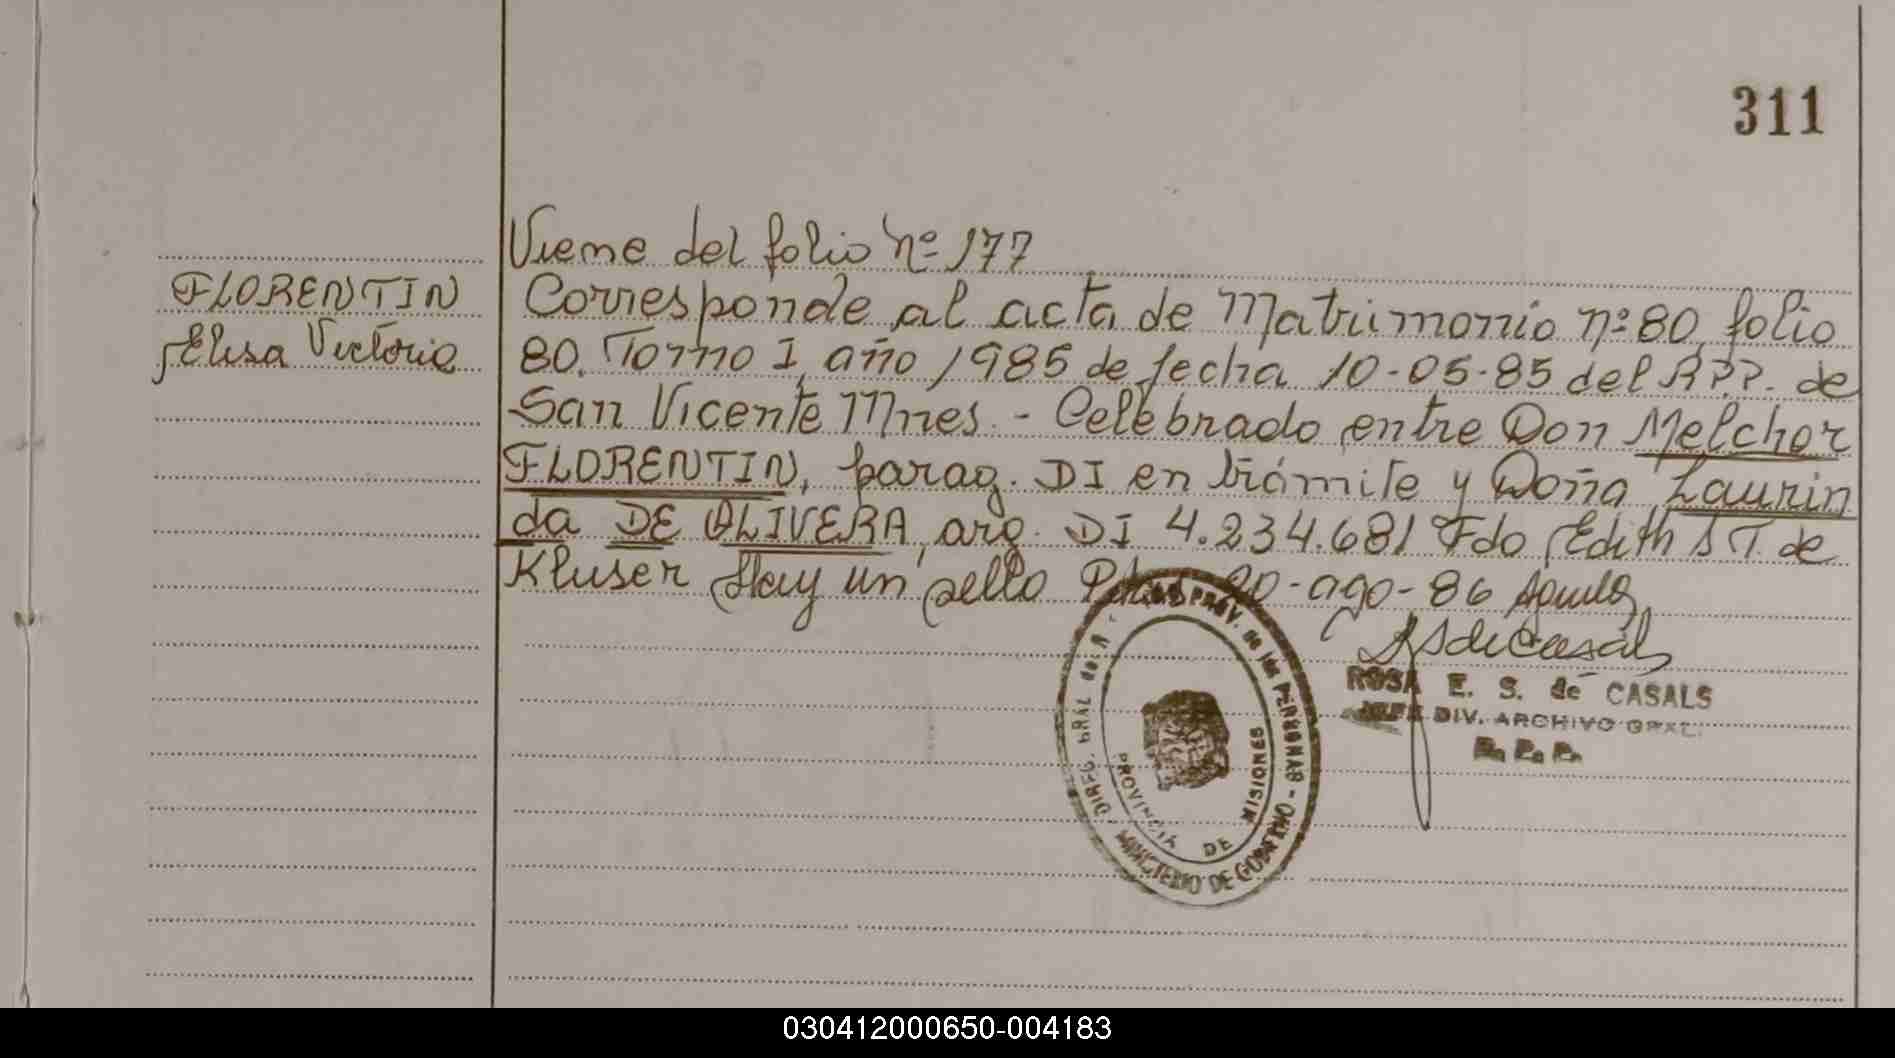 311
Viene del folio nº 177
FLORENTIN
Elisa Victoria
Corresponde al acta de Matrimonio nº 80, folio
80. Tomo I, año 1985 de fecha 10-05-85 del RPP. de
San Vicente Mnes. - Celebrado entre Don Melchor
FLORENTIN, parag. DI en trámite y Doña Laurin
da DE OLIVERA, arg. DI 4.234.681 Fdo Edith S T. de
Kluser Hay un sello Pdas 20-ago-86
ROSA E. S. de CASALS
JEFE DIV. ARCHIVO GRAL.
R. P. P.
DIREC. GRAL del PROV. de las PERSONAS -
MINISTERIO DE GOBIERNO -
PROVINCIA DE MISIONES
030412000650-004183